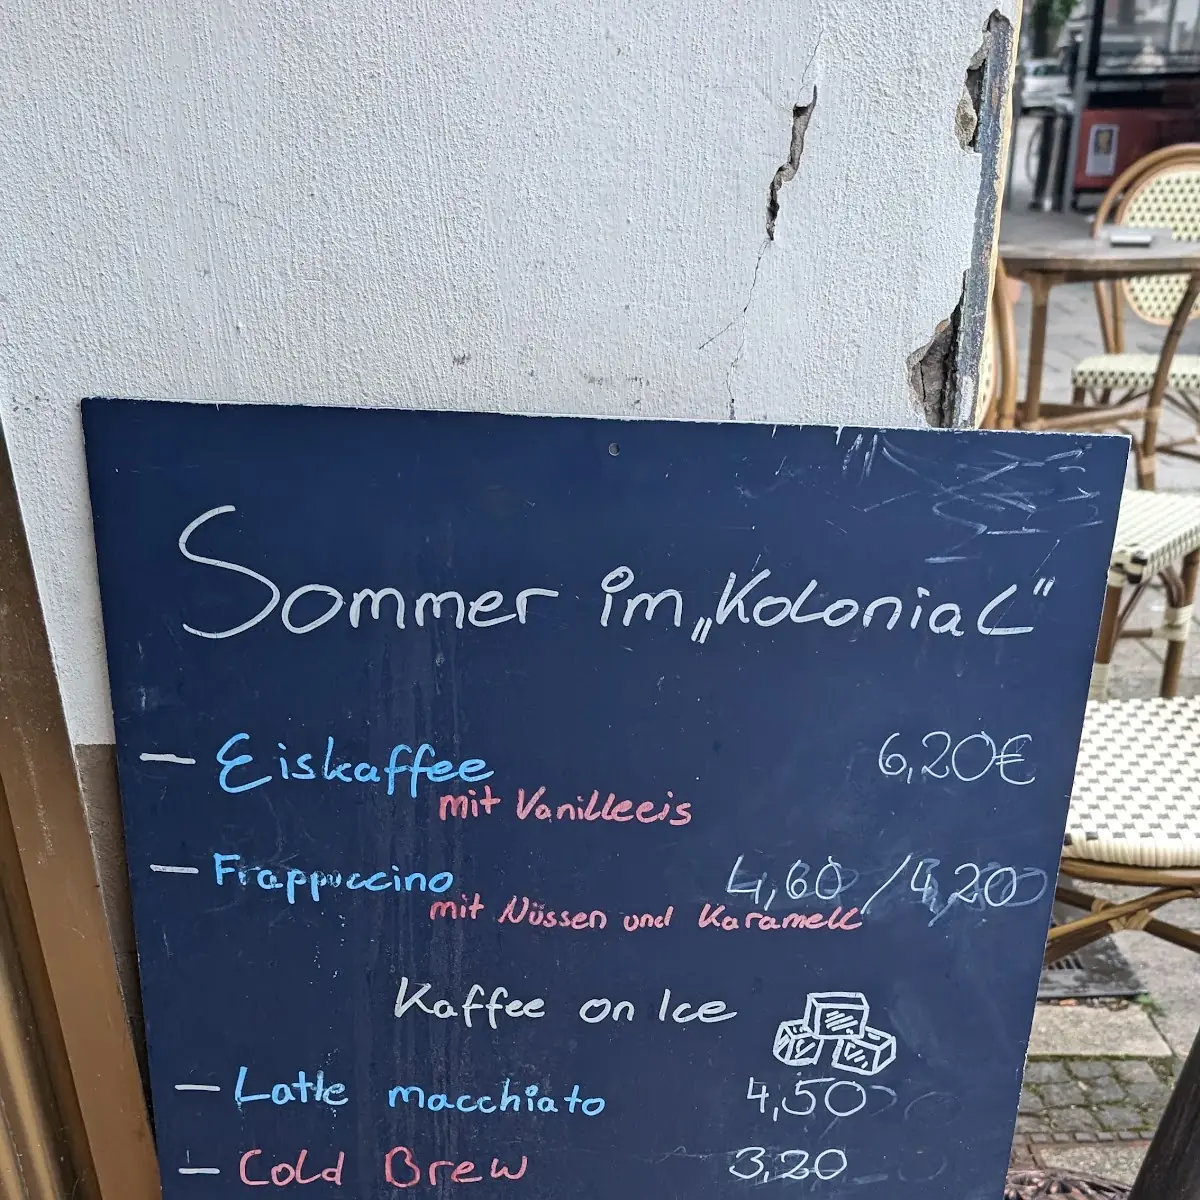 Sommer im „Kolonial“
– Eiskaffee 6,20€
mit Vanilleeis
– Frappuccino 4,60 / 4,20
mit Nüssen und Karamell
Kaffee on Ice
– Latte macchiato 4,50
– Cold Brew 3,20